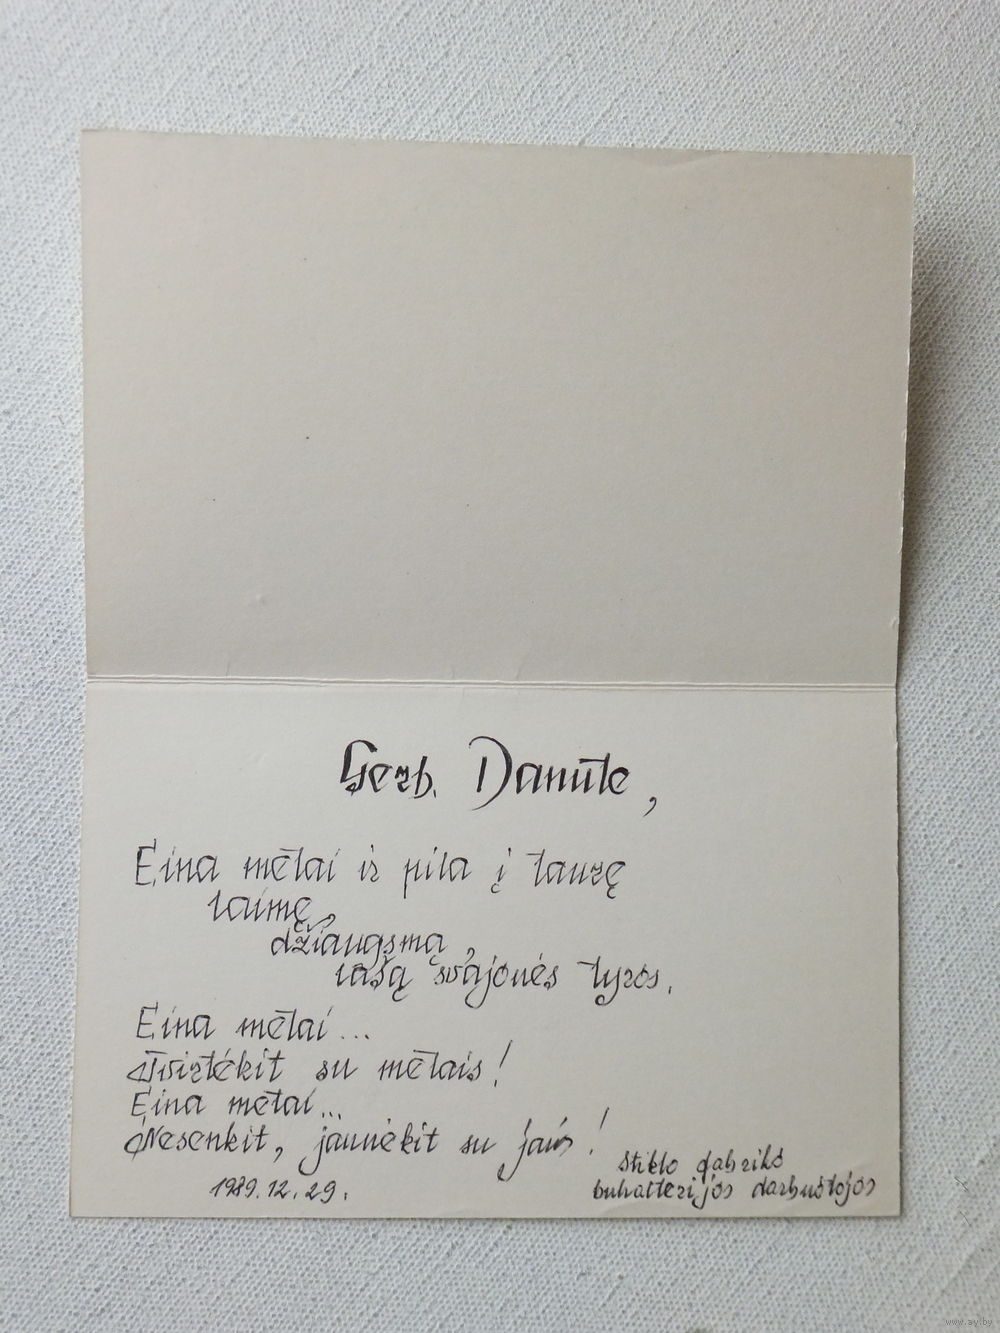 Gerb. Danute,
Eina metai ir pila į taurę
laimę,
džiaugsmą,
rasą svajonės tyros.
Eina metai...
Tvirtėkit su metais!
Eina metai...
Nesenkit, jaunėkit su jais!
1989.12.29.
Stiklo fabriko
buhalterijos darbuotojos
www.ay.by